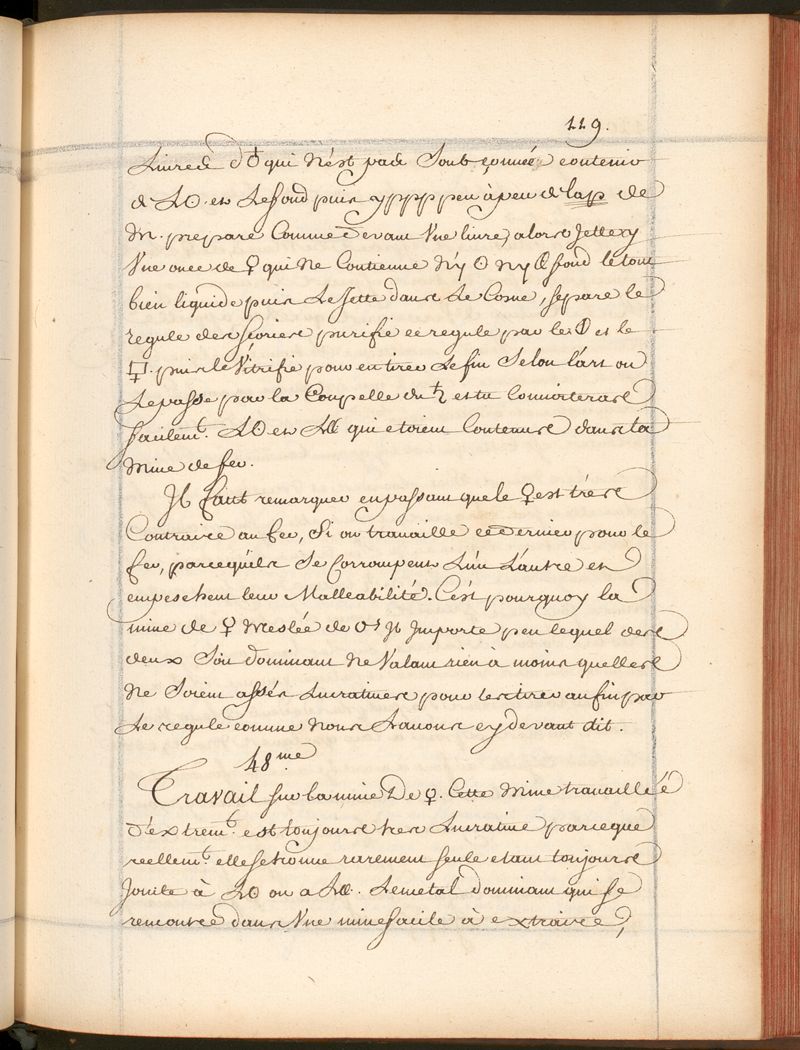 119.
Livre de ♁ qui n'est pas Soubçonnée contenir
de L☉. et Lefond puis y ppp peu àpeu de lap de
M. preparé Comme devant Vne livre, alors Jettey
Vne once de ♀ qui Ne Contienne N'y ☉ Ny ☾ fond letout
bien liquide puis Le Jette dans Le Cosne, separe le
regule des scories purifie ce regule par le ⦶ et le
puis le Vitrifie pour entirer Lefin Selon l'art ou
Lepasse par la Coupelle du ♄ et tu Connoiteras
facilemt. L☉ et L☾ qui etoient Contenus dans ta
Mine de fer.
Jl faut remarquer enpassant que le ♀ est tres
Contraire au fer, Si on travaille ce dernier pour le
fer, parcequ'ils Se Corrompent L'un L'autre et
empeschent leur Malleabilité. C'est pourquoy la
mine de ♀ Meslée de ♂ Jl Jmporte peu lequel des
deux Soit dominant Ne Valant rien à moins quelles
Ne Soient assés Lucratives pour les tirer au fin par
Le regule comme Nous L'avons cy devant dit.
48.me
Travail sur la mine De ♀. Cette Mine travaillée
d'extremt. est toujours tres Lucrative parceque
reellemt. elle se trouve rarement seule etant toujours
Jointe à L☉ ou a L☾. Lemetal dominant qui se
rencontre dans Vne mine facile à extraire,